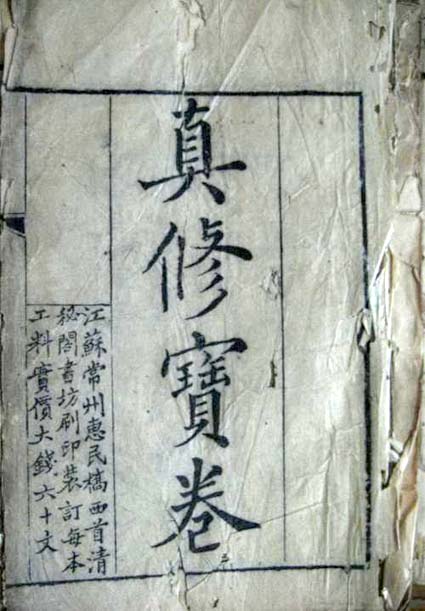 真修寶卷
江蘇常州惠民橋西首清
秘閣書坊刷印裝訂每本
工料實價大錢六十文